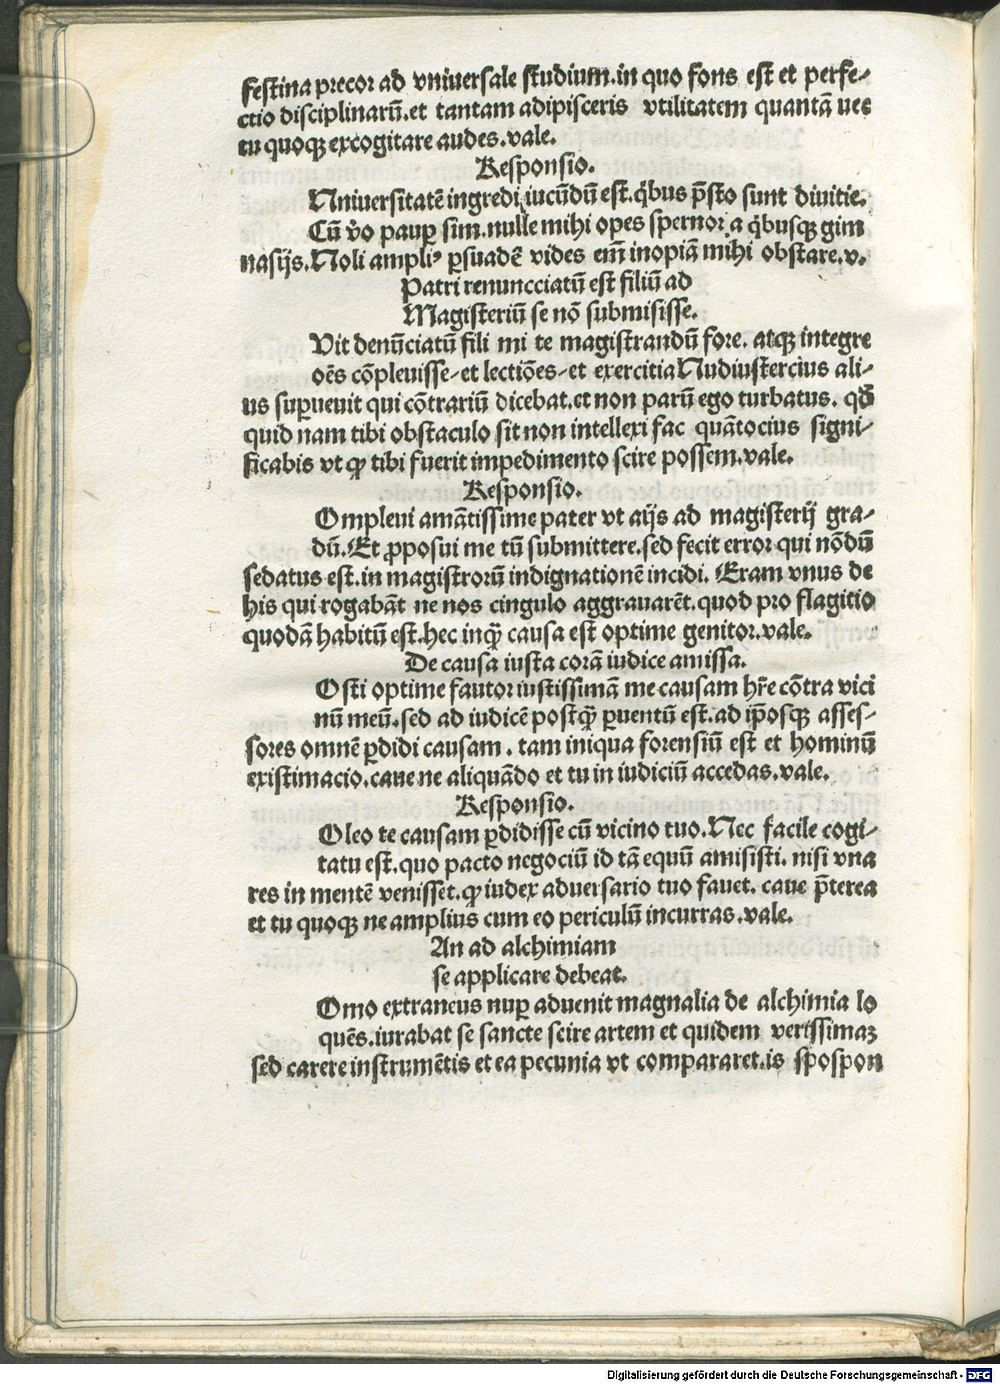 festina precor ad vniuersale studium.in quo fons est et perfe-
ctio disciplinarū.et tantam adipisceris vtilitatem quantā nec
tu quoqꝫ excogitare audes.vale.
Responsio.
Vniuersitatē ingredi iucūdū est.q̇bus p̄sto sunt diuitie.
Cū v̊o paup̲ sim.nulle mihi opes spernor a q̇busqꝫ gim
nasijs.Noli ampliꝰ ꝑsuadē vides em̄ inopiā mihi obstare.v.
Patri renuncciatū est filiū ad
Magisteriū se nō submisisse.
Vit denūciatū fili mi te magistrandū fore. atqꝫ integre
oēs cōpleuisse-et lectiōes-et exercitia Nudiustercius ali-
us suꝑuenit qui cōtrariū dicebat.et non parū ego turbatus. qđ
quid nam tibi obstaculo sit non intellexi fac quātocius signi-
ficabis vt qꝫ tibi fuerit impedimento scire possem.vale.
Responsio.
Ompleui amātissime pater vt aijs ad magisterij gra-
dū.Et ꝓposui me tū submittere.sed fecit error qui nōdū
sedatus est.in magistrorū indignationē incidi. Eram vnus de
his qui rogabāt ne nos cingulo aggrauarēt.quod pro flagitio
quodā habitū est.hec inqꝫ̄ causa est optime genitor.vale.
De causa iusta corā iudice amissa.
Osti optime fautor iustissimā me causam hr̄e cōtra vici
nū meū.sed ad iudicē postqꝫ̄ ꝑuentū est.ad ip̄osqꝫ asses-
sores omnē ꝑdidi causam . tam iniqua forensiū est et hominū
existimacio.caue ne aliquādo et tu in iudiciū accedas.vale.
Responsio.
Oleo te causam ꝑdidisse cū vicino tuo.Nec facile cogi-
tatu est.quo pacto negociū id tā equū amisisti. nisi vna
res in mentē venisset.qꝫ iudex aduersario tuo fauet. caue p̄terea
et tu quoqꝫ ne amplius cum eo periculū incurras.vale.
An ad alchimiam
se applicare debeat.
Omo extraneus nup̲ aduenit magnalia de alchimia lo
quēs.iurabat se sancte scire artem et quidem verissimaꝫ
sed carere instrumētis et ea pecunia vt compararet.is spospon
Digitalisierung gefördert durch die Deutsche Forschungsgemeinschaft - DFG